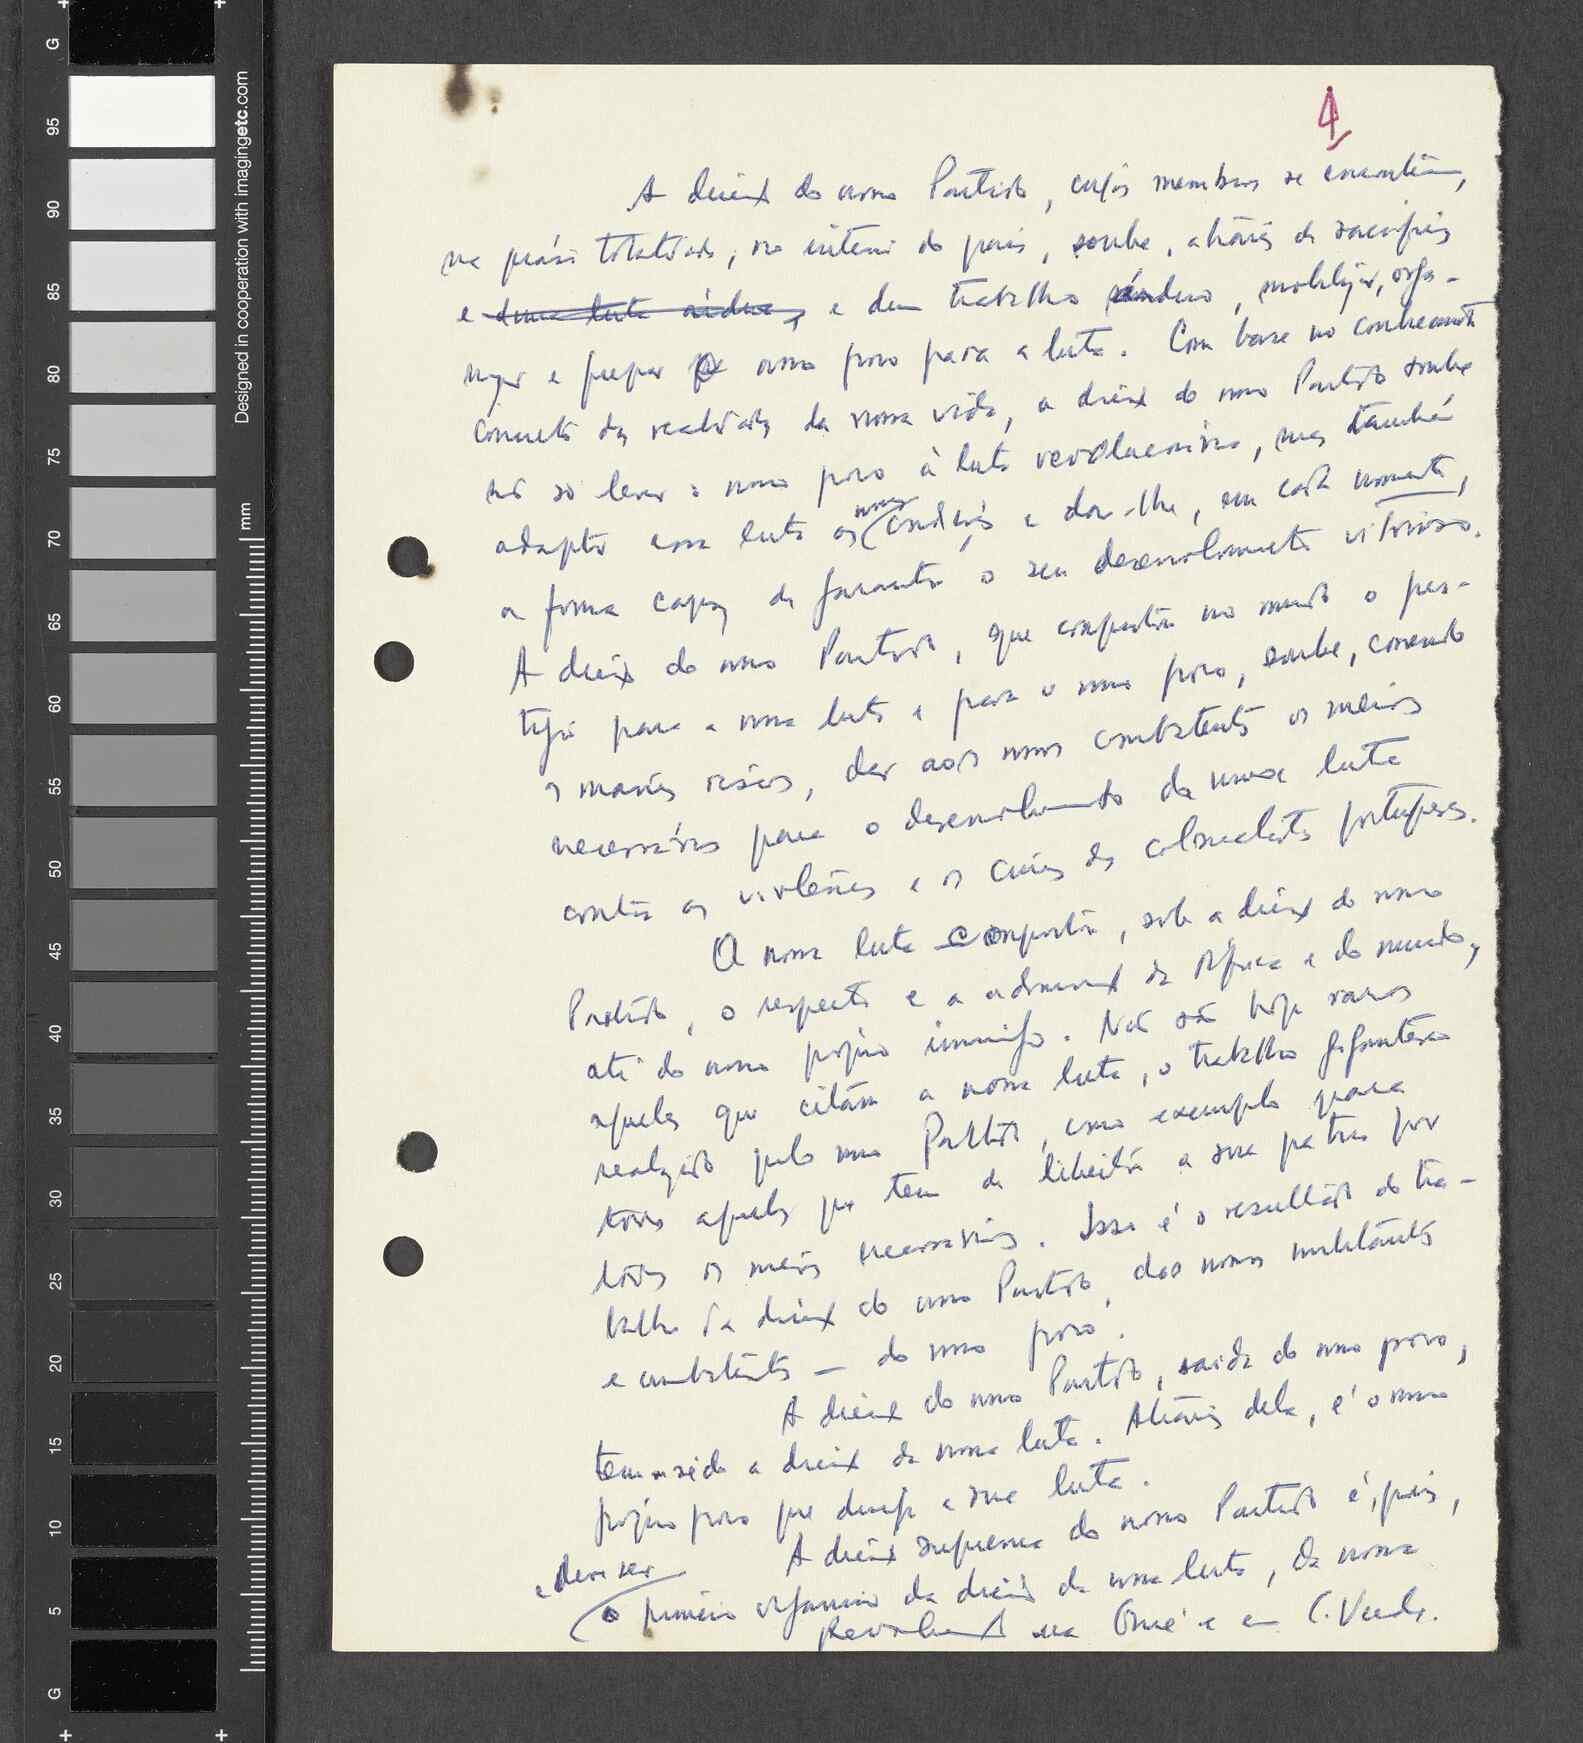 4
A direcx do nosso Partido, cujos membros se encontram,
na quási totalidade, no interior do país, soube, através de sacrifícios
e duma luta árdua, e dum trabalho árduo, mobilizar, orga-
nizar e preparar o nosso povo para a luta. Com base no conhecimento
concreto das realidades da nossa vida, a direcx do nosso Partido soube
não só levar o nosso povo à luta revolucionária, mas também
adaptar essa luta às nossas condições e dar-lhe, em cada momento,
a forma capaz de garantir o seu desenvolvimento vitorioso.
A direcx do nosso Partido, que conquistou no mundo o pres-
tígio para a nossa luta e para o nosso povo, soube, correndo
os maiores riscos, dar aos nossos combatentes os meios
necessários para o desenvolvimento da nossa luta
contra as violências e os crimes dos colonialistas portugueses.
A nossa luta conquistou, sob a direcx do nosso
Partido, o respeito e a admiracx da África e do mundo,
até do nosso próprio inimigo. Não são hoje raros
aqueles que citam a nossa luta, o trabalho gigantesco
realizado pelo nosso Partido, como exemplo para
todos aqueles que tem de libertar a sua pátria por
todos os meios necessários. Isso é o resultado do tra-
balho da direcx do nosso Partido, dos nossos militantes
e combatentes — do nosso povo.
A direcx do nosso Partido, saída do nosso povo,
tem sido a direcx da nossa luta. Através dela, é o nosso
próprio povo que dirige a sua luta.
A direcx suprema do nosso Partido é, pois,
e deve ser
o primeiro organismo da direcx da nossa luta, da nossa
Revolucx na Guiné e em C. Verde.
Designed in cooperation with imagingetc.com
mm
G
95
90
85
80
75
70
65
60
55
50
45
40
35
30
25
20
15
10
5
G